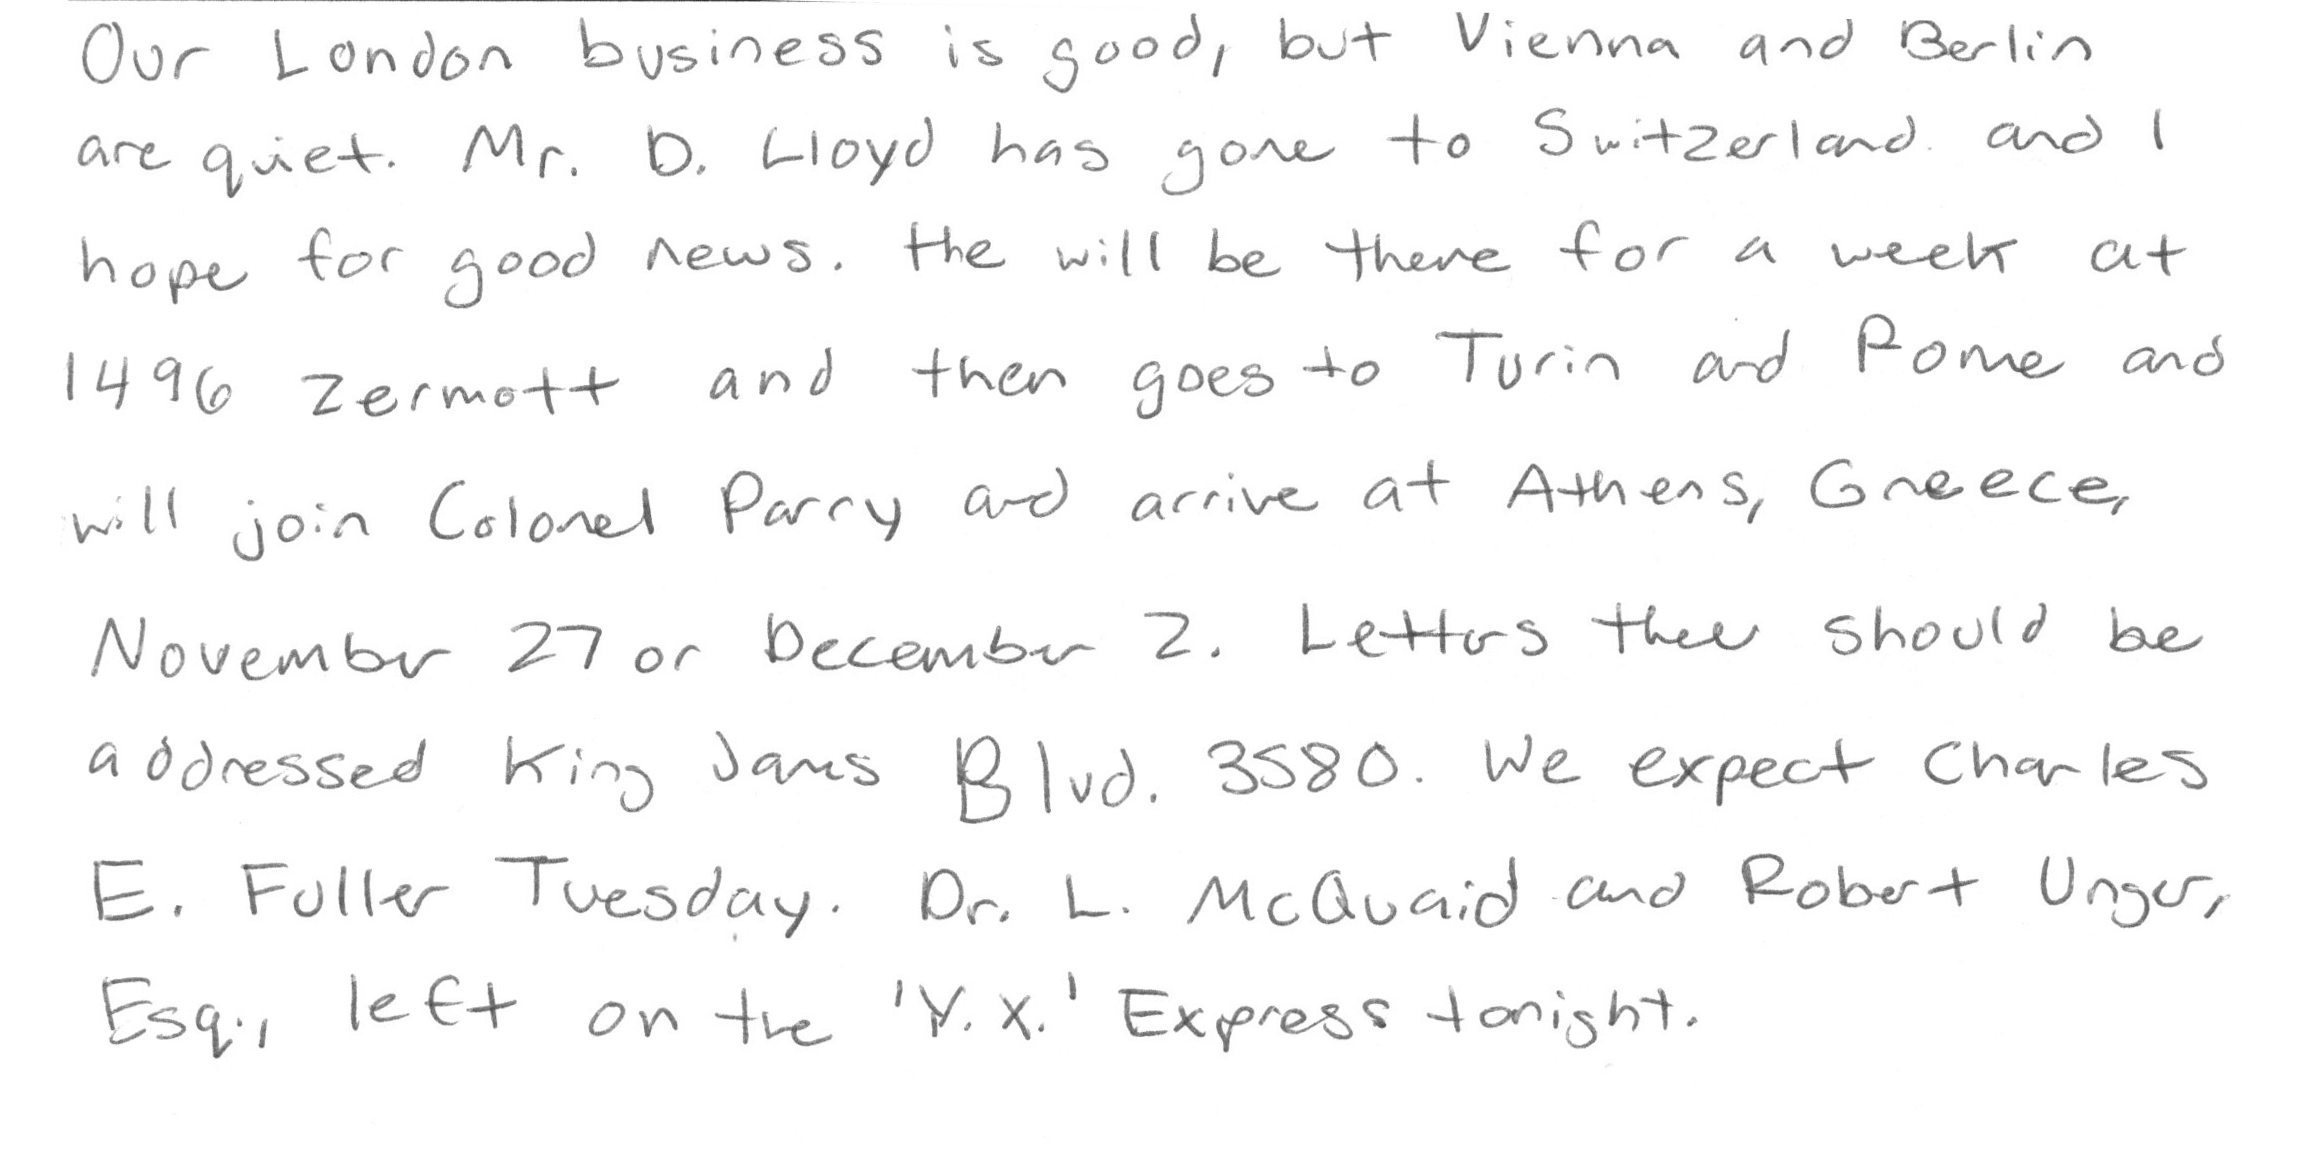 Our London business is good, but Vienna and Berlin
are quiet. Mr. D. Lloyd has gone to Switzerland and I
hope for good news. He will be there for a week at
1496 Zermott and then goes to Turin and Rome and
will join Colonel Parry and arrive at Athens, Greece,
November 27 or December 2. Letters there should be
addressed King James Blvd. 3580. We expect Charles
E. Fuller Tuesday. Dr. L. McQuaid and Robert Unger,
Esq., left on the 'Y.X.' Express tonight.